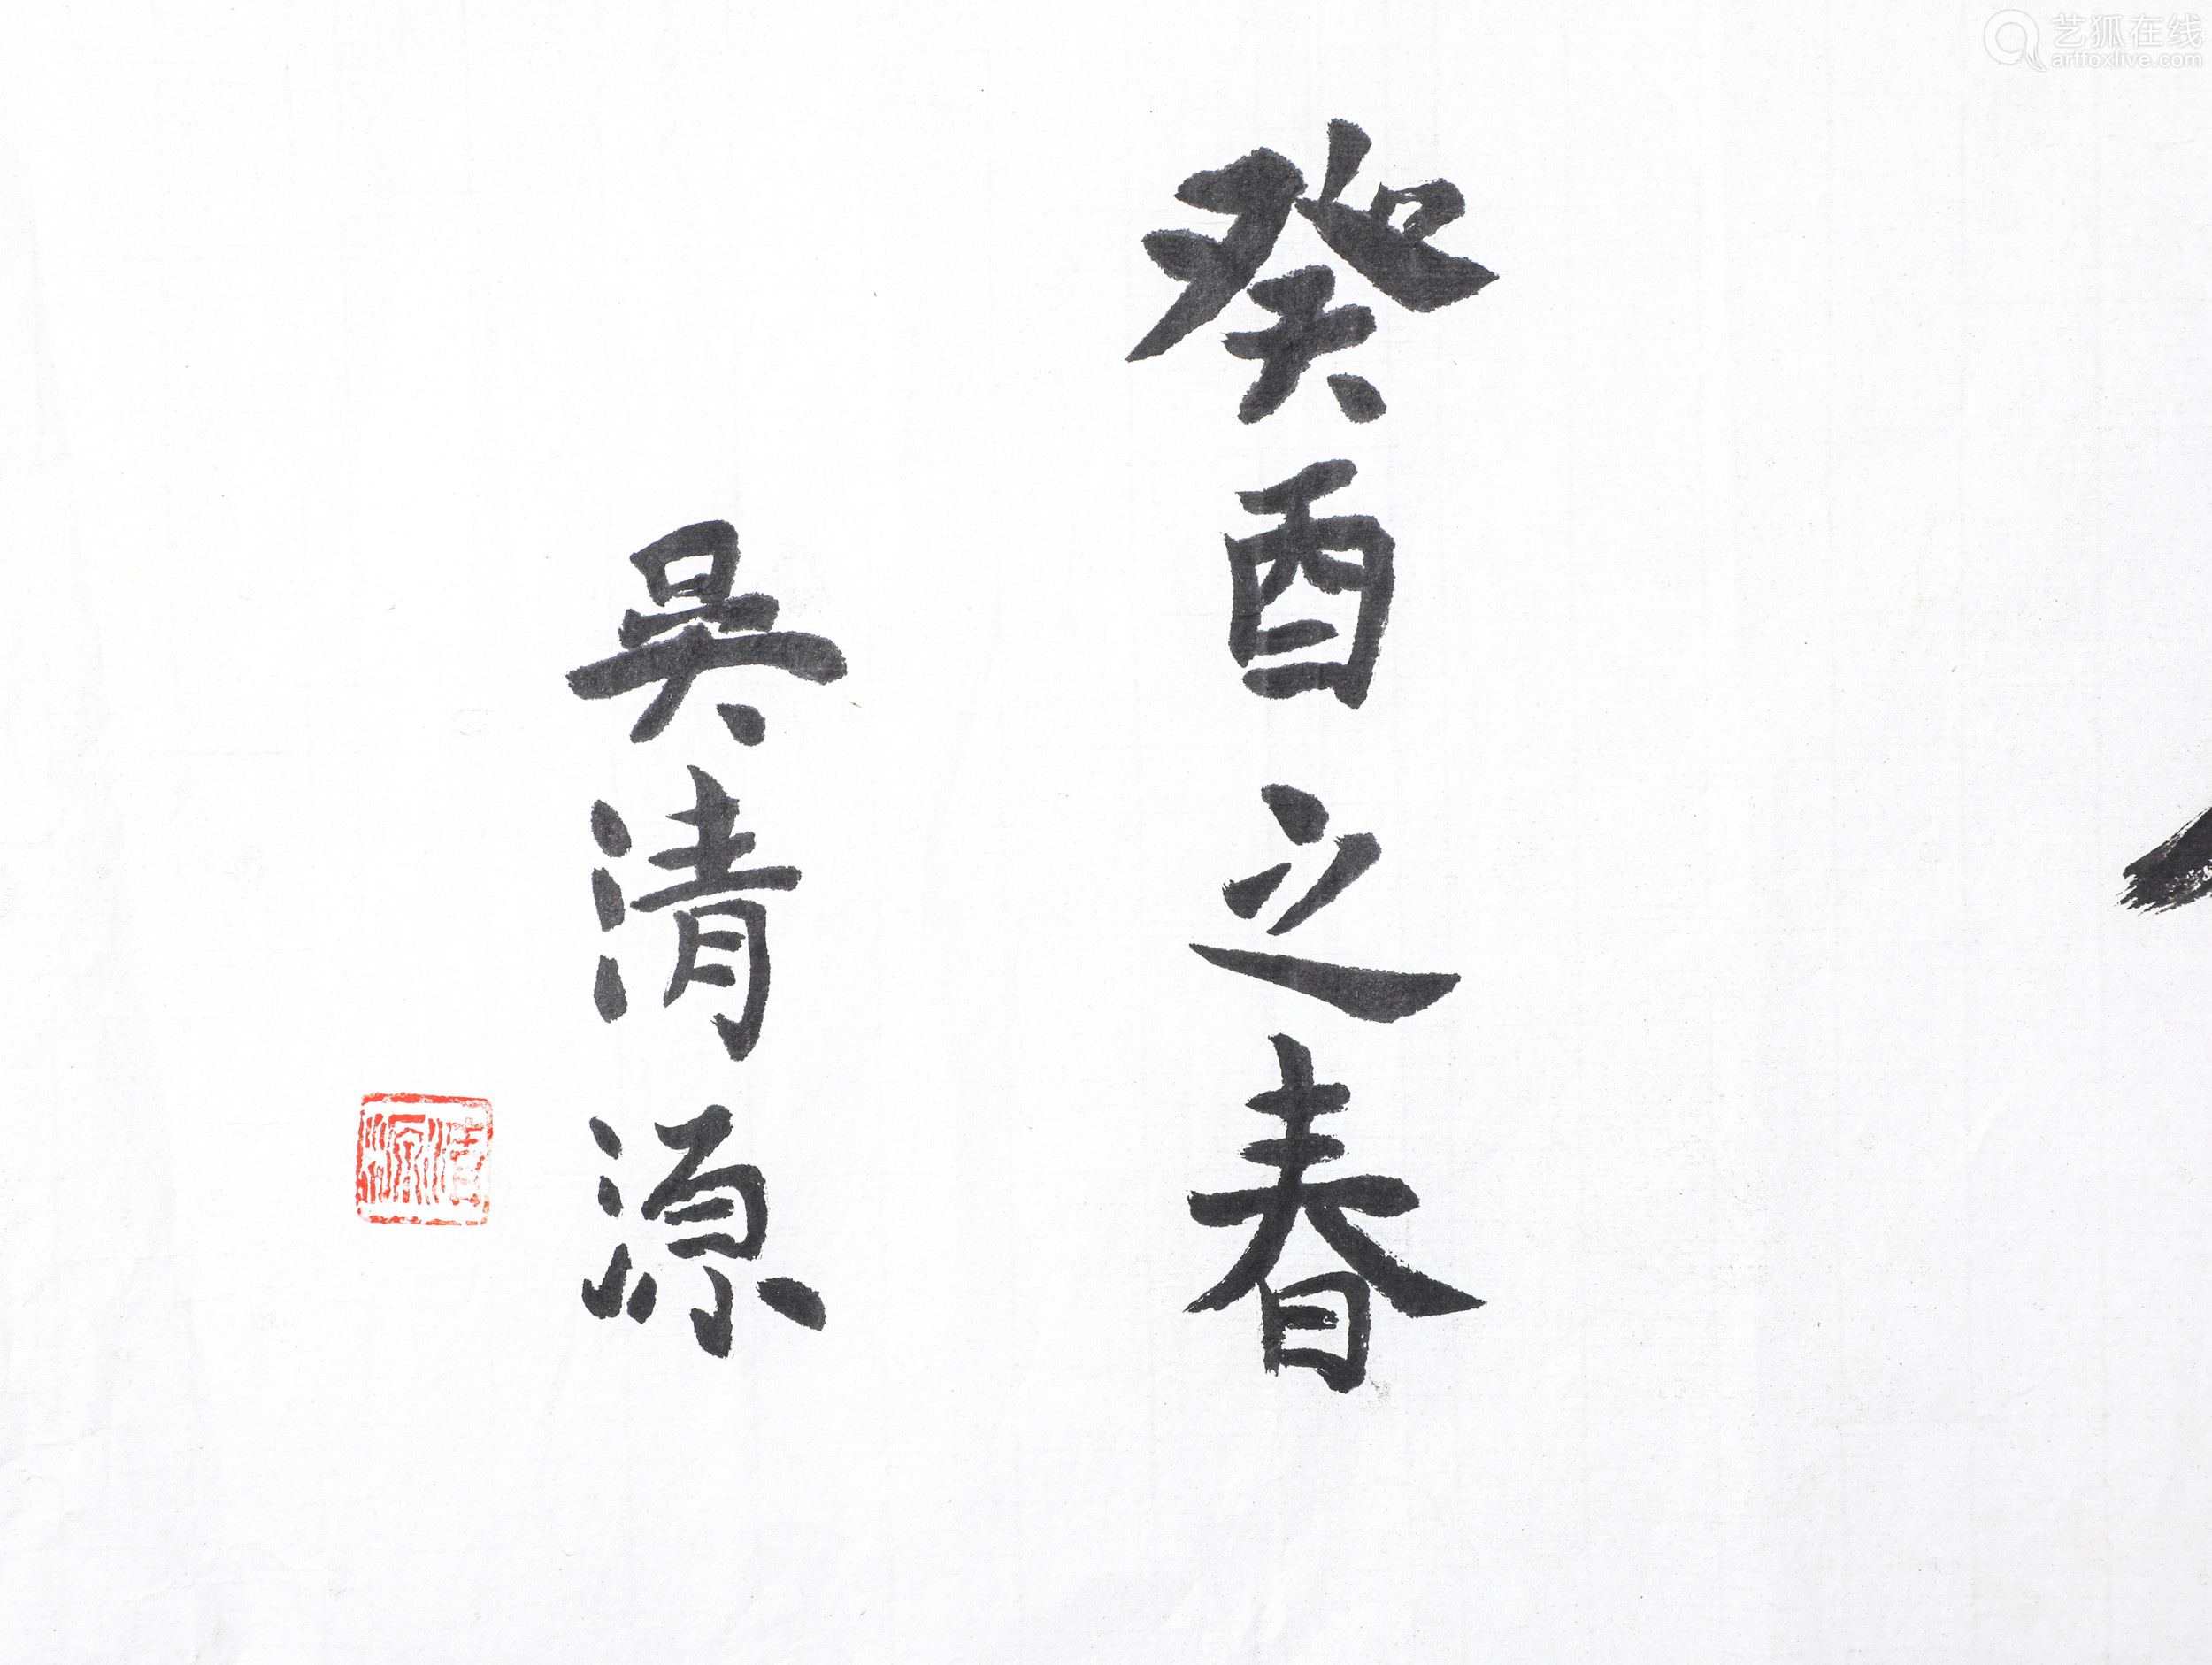 癸酉之春
吴清源
清源
艺狐在线
artfoxlive.com